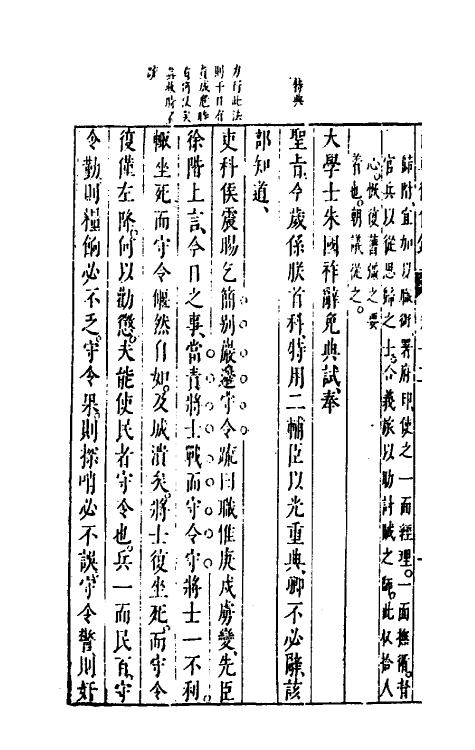 歸附宜加以職銜署府印使之一面經理一面撫循督
官兵以從思歸之士合義旅以助討賊之師此收拾人
心恢復舊疆之要
着也朝議從之
特典
大學士朱國祚辭免典試奉
聖旨今歲係朕首科特用二輔臣以光重典卿不必辭該
部知道
力行此法
則于目有
吏科侯震暘乞簡別嚴邊守令疏曰臣惟庚戌虜變先臣
徐階上言今日之事當責將士戰而守令守將士一不利
輙坐死而守令偃然自如及城潰矣將士復坐死而守令
復僅左降何以勸懲夫能使民者守令也兵一而民百守
令勤則糧餉必不乏守令果則探哨必不誤守令警則奸